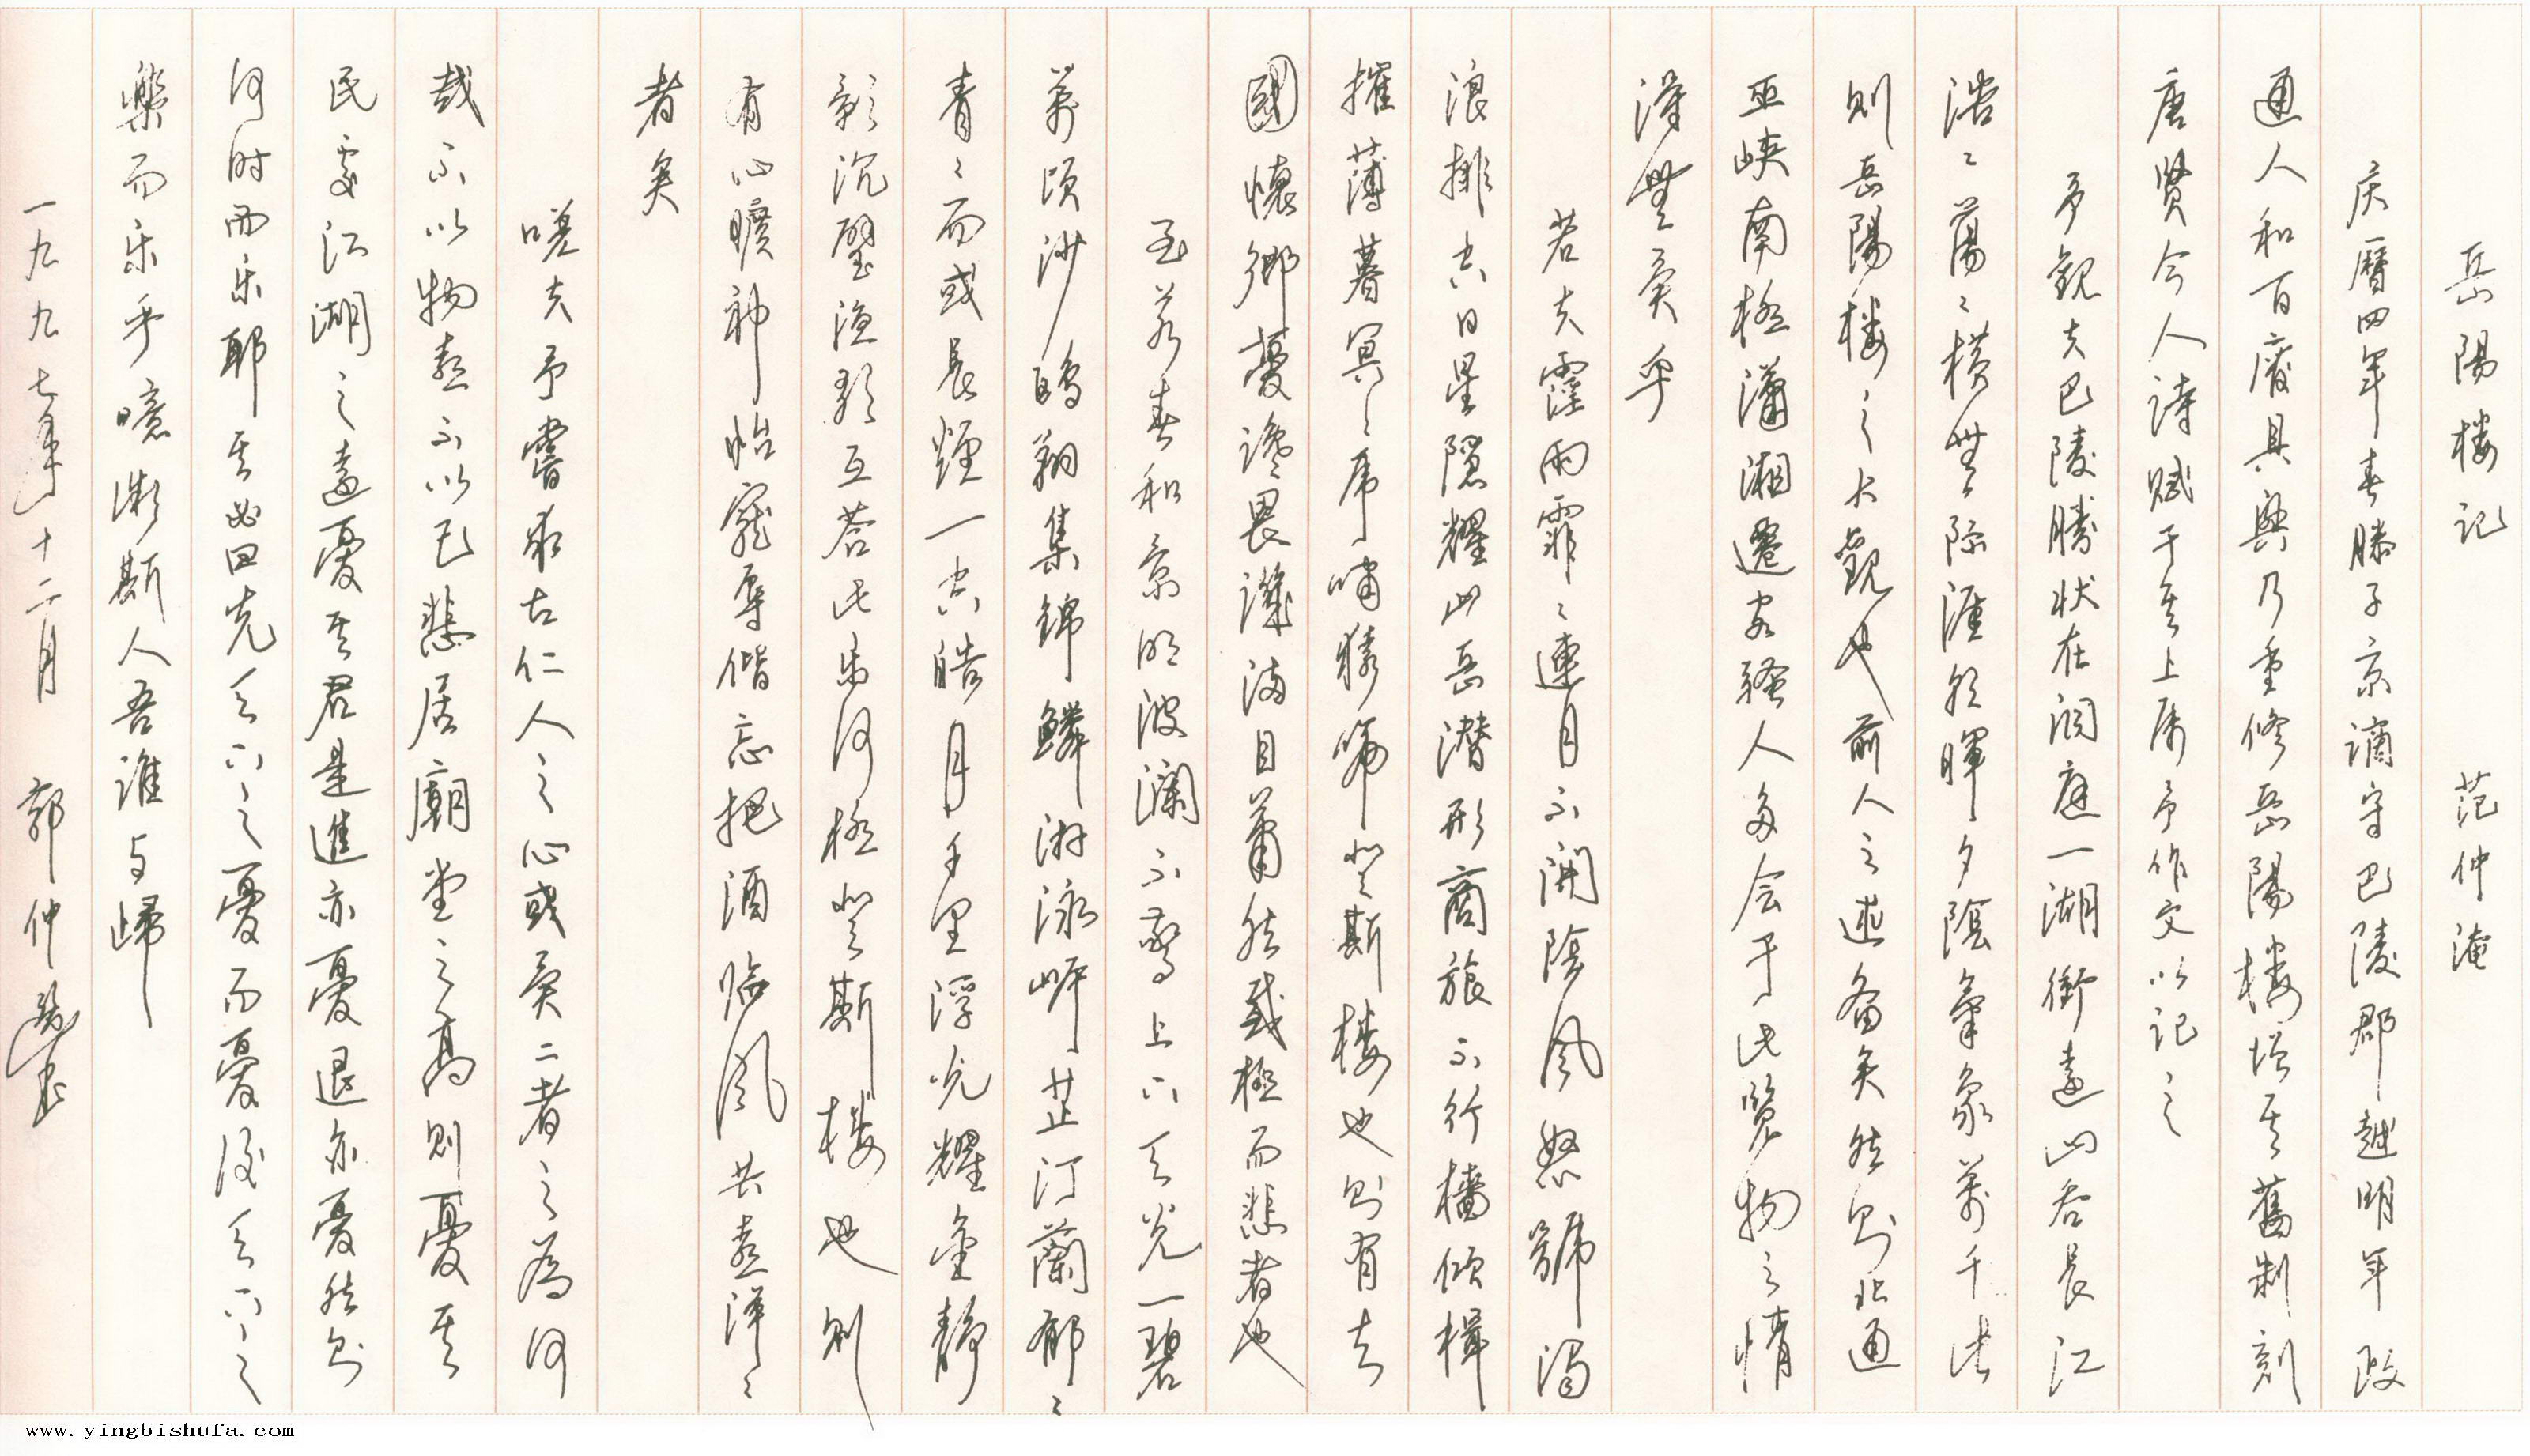 岳陽楼記 范仲淹
庆曆四年春滕子京谪守巴陵郡越明年政
通人和百废具興乃重修岳陽楼增其舊制刻
唐贤今人诗赋于其上属予作文以记之
予観夫巴陵勝状在洞庭一湖衔遠山吞長江
浩々蕩々横無际涯朝暉夕陰氣象萬千此
则岳陽楼之大観也前人之述备矣然则北通
巫峡南极瀟湘遷客騷人多会于此覽物之情
得無異乎
若夫霪雨霏々連月不開陰風怒號濁
浪排空日星隱耀山岳潜形商旅不行檣倾楫
摧薄暮冥々虎嘯猿啼登斯楼也则有去
國懷鄉憂谗畏譏满目萧然感极而悲者也
至若春和景明波澜不驚上下天光一碧
萬顷沙鷗翔集錦鱗游泳岸芷汀蘭郁々
青々而或長煙一空皓月千里浮光耀金静
影沉璧渔歌互答此乐何极登斯楼也则
有心曠神怡寵辱偕忘把酒临風其喜洋々
者矣
嗟夫予嘗求古仁人之心或異二者之為何
哉不以物喜不以己悲居廟堂之高则憂其
民处江湖之遠憂其君是進亦憂退亦憂然则
何时而乐耶其必曰先天下之憂而憂後天下之
樂而乐乎噫微斯人吾谁与歸
一九九七年十二月 郭仲選书
www.yingbishufa.com